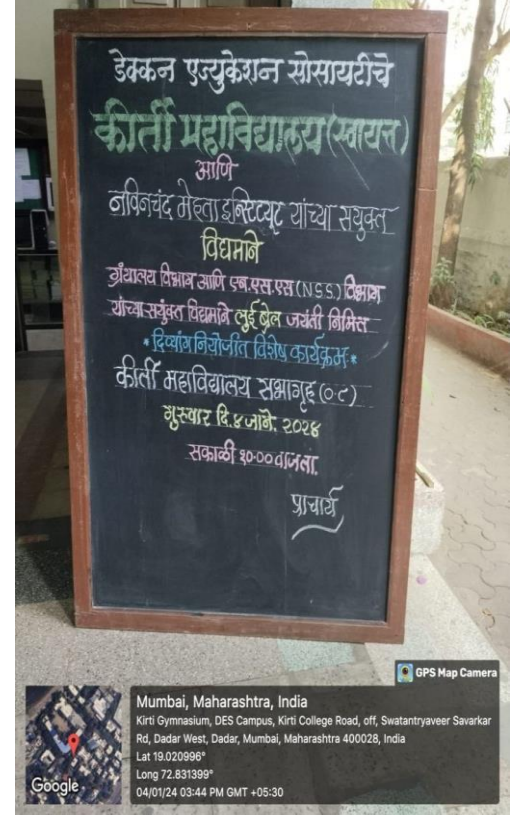 डेक्कन एज्युकेशन सोसायटीचे
कीर्ती महाविद्यालय (स्वायत्त)
आणि
नविनचंद मेहता इन्स्टिट्यूट यांच्या सयुक्त
विद्यमाने
ग्रंथालय विभाग आणि एन.एस.एस (N.S.S.) विभाग
यांच्या सयुंक्त विद्यमाने लुई ब्रेल जयंती निमित्त
* दिव्यांग नियोजीत विशेष कार्यक्रम *
कीर्ती महाविद्यालय सभागृह (०९)
गुरुवार दि. ४ जाने. २०२४
सकाळी १०.०० वाजता.
प्राचार्य
GPS Map Camera
Mumbai, Maharashtra, India
Kirti Gymnasium, DES Campus, Kirti College Road, off, Swatantryaveer Savarkar
Rd, Dadar West, Dadar, Mumbai, Maharashtra 400028, India
Lat 19.020996°
Long 72.831399°
04/01/24 03:44 PM GMT +05:30
Google